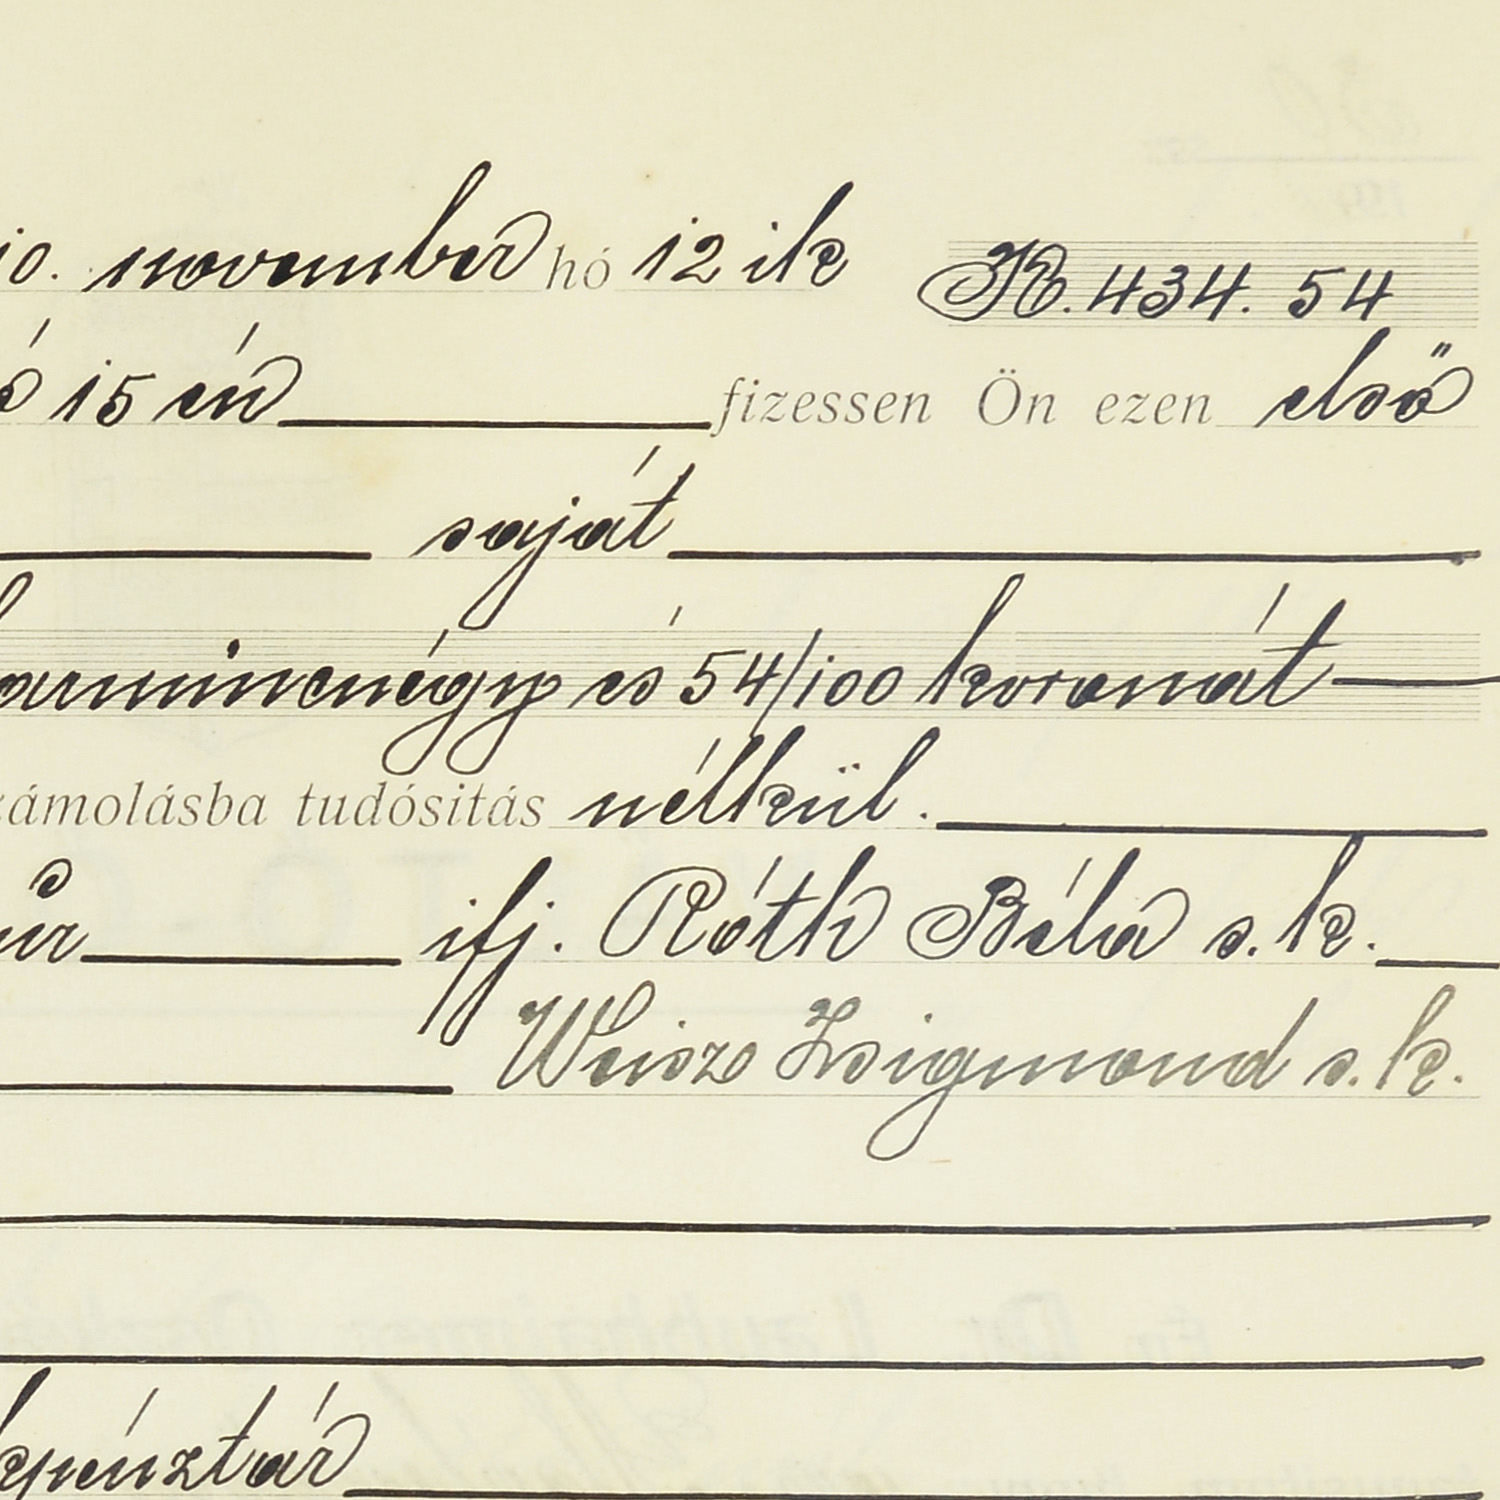 10. november hó 12 ik K. 434. 54
15 én fizessen Ön ezen első
saját
harmincnégy és 54/100 koronát
számolásba tudósitás nélkül.
úr ifj. Róth Béla s. k.
Weisz Zsigmond s. k.